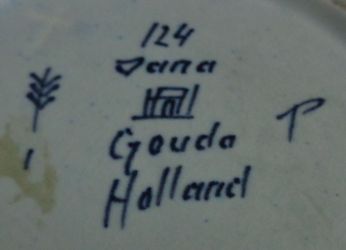 124
Dana
Gouda
Holland
P
1